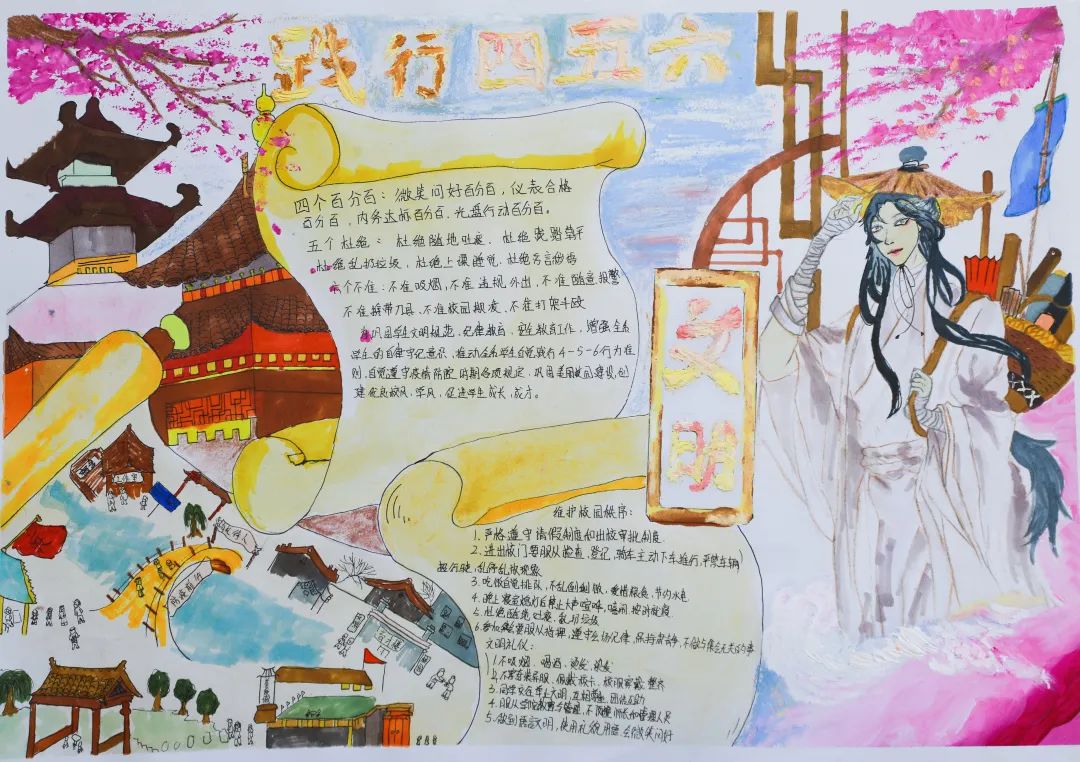 践行四五六
四个百分百：微笑问好百分百，仪表合格
百分百，内务达标百分百，光盘行动百分百。
五个杜绝：杜绝随地吐痰，杜绝践踏草平
杜绝乱扔垃圾，杜绝上课睡觉，杜绝
六个不准：不准吸烟，不准违规外出，不准随意报警
不准携带刀具，不准校园欺凌，不准打架斗殴
巩固学生文明规范，纪律教育，安全教育工作，增强全系
学生的自律守纪意识，推动全系学生自觉践行4-5-6行为准
则，自觉遵守疫情防控时期各项规定，巩固美丽校园建设，创
建优良校风，学风，促进学生成长，成才。
文明
维护校园秩序：
1.严格遵守请假制度和出校审批制度
2.进出校门要服从检查，登记，骑车主动下车推行，严禁车辆
乱停乱放现象
3.吃饭自觉排队，不乱倒剩饭，爱惜粮食，节约水电
4.晚上寝室熄灯后禁止大声喧哗，嬉闹，按时就寝
5.杜绝随地吐痰，乱扔垃圾
6.参加集会要服从指挥，遵守会场纪律，保持肃静，不做与集会无关的事
文明礼仪：
1.不吸烟，喝酒，
2.不穿奇装异服，佩戴校卡，校服穿戴整齐
3.同学交往举止大方，互相尊重，团结互助
4.服从学院教育与管理，不顶撞师长和管理人员
5.做到语言文明，使用礼貌用语，会微笑问好